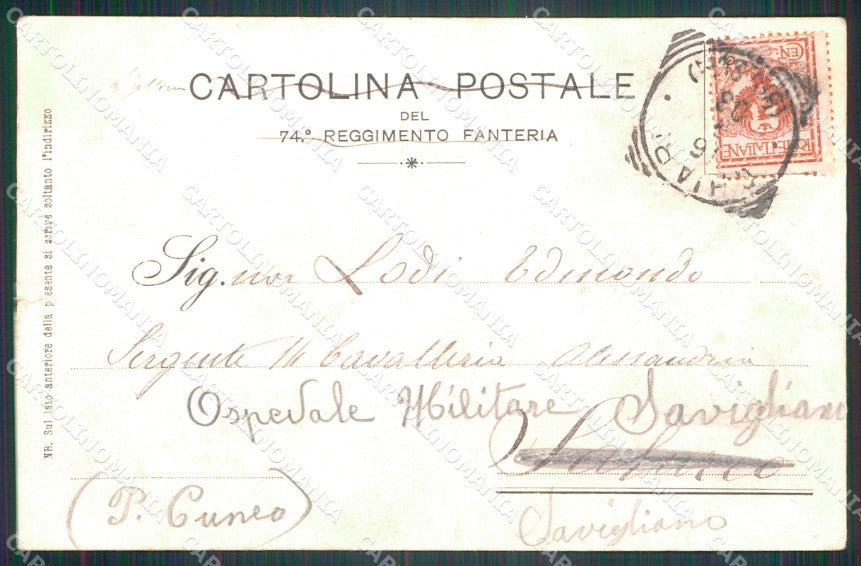 CARTOLINA POSTALE
DEL
74.º REGGIMENTO FANTERIA
POSTE ITALIANE
Sig.nor Lodi Edmondo
Sergente Cavalleria Alessandria
Ospedale Militare Savigliano
Savigliano
(P. Cuneo)
NB. Sul lato anteriore della presente si scrive soltanto l'indirizzo
CARTOLINOMANIA